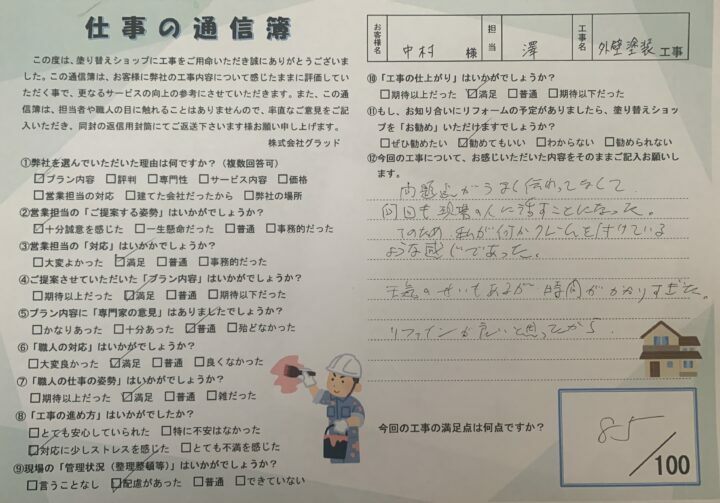 仕事の通信簿
この度は、塗り替えショップに工事をご用命いただき誠にありがとうございま
した。この通信簿は、お客様に弊社の工事内容について感じたままに評価してい
ただく事で、更なるサービスの向上の参考にさせていただきます。また、この通
信簿は、担当者や職人の目に触れることはありませんので、率直なご意見をご記
入いただき、同封の返信用封筒にてご返送下さいます様お願い申し上げます。
株式会社グラッド
①弊社を選んでいただいた理由は何ですか？（複数回答可）
☑プラン内容 □評判 □専門性 □サービス内容 □価格
□営業担当の対応 □建てた会社だったから □弊社の場所
②営業担当の「ご提案する姿勢」はいかがでしょうか？
☑十分誠意を感じた □一生懸命だった □普通 □事務的だった
③営業担当の「対応」はいかがでしょうか？
□大変よかった ☑満足 □普通 □事務的だった
④ご提案させていただいた「プラン内容」はいかがでしょうか？
□期待以上だった ☑満足 □普通 □期待以下だった
⑤プラン内容に「専門家の意見」はありましたでしょうか？
□かなりあった □十分あった ☑普通 □殆どなかった
⑥「職人の対応」はいかがでしょうか？
□大変良かった ☑満足 □普通 □良くなかった
⑦「職人の仕事の姿勢」はいかがでしょうか？
□期待以上だった ☑満足 □普通 □雑だった
⑧「工事の進め方」はいかがでしたか？
□とても安心していられた □特に不安はなかった
☑対応に少しストレスを感じた □とても不満を感じた
⑨現場の「管理状況（整理整頓等）」はいかがでしょうか？
□言うことなし ☑配慮があった □普通 □できていない
お客様名 中村 様 担当 澤 工事名 外壁塗装 工事
⑩「工事の仕上がり」はいかがでしょうか？
□期待以上だった ☑満足 □普通 □期待以下だった
⑪もし、お知り合いにリフォームの予定がありましたら、塗り替えショッ
プを「お勧め」いただけますでしょうか？
□ぜひ勧めたい ☑勧めてもいい □わからない □勧められない
⑫今回の工事について、お感じいただいた内容をそのままご記入お願いし
ます。
問題点がうまく伝わってなくて
何回も現場の人に話すことになった。
そのため、私が何かクレームを付けている
ような感じであった。
天気のせいもあるが時間がかかりすぎた。
リファインが良いと思ったから
今回の工事の満足点は何点ですか？
85/100